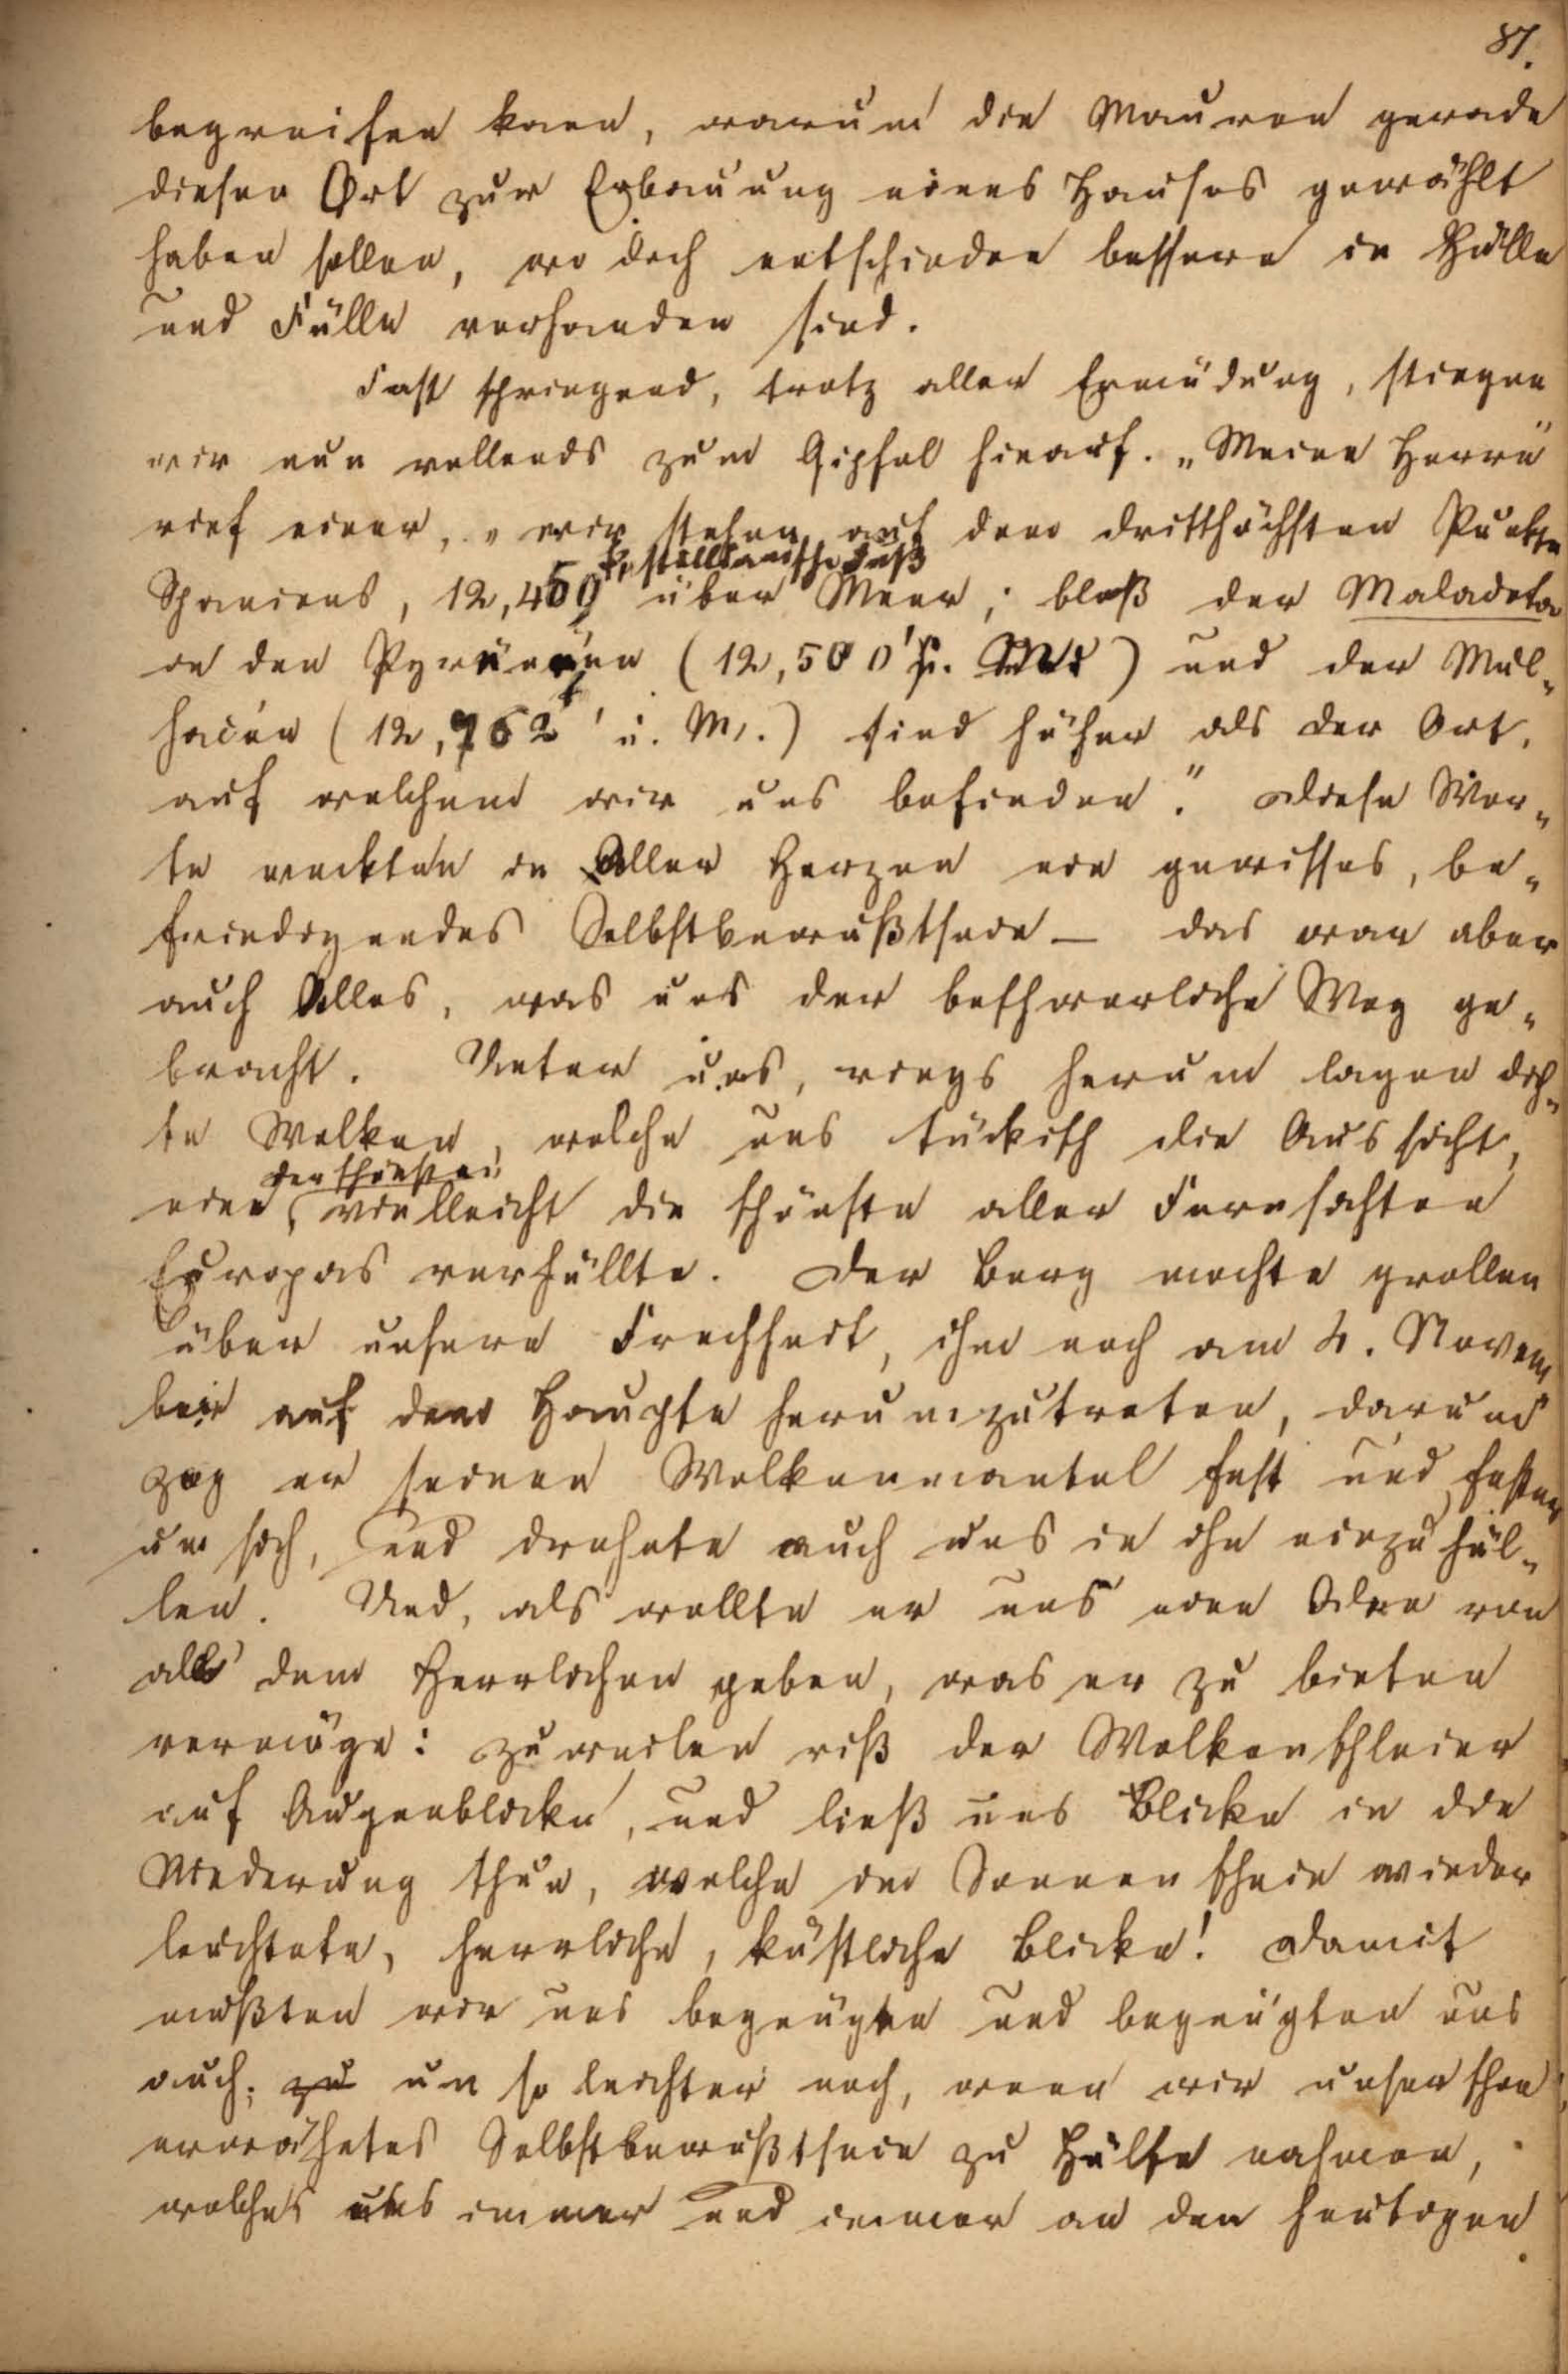 87.
begreifen kann, warum die Mauren gerade
diesen Ort zur Erbauung eines Hauses gewählt
haben sollen, wo doch entschieden bessere in Hülle
und Fülle vorhanden sind.
Fast springend, trotz aller Ermüdung, stiegen
wir nun vollends zum Gipfel hinauf. „Meine Herrn"
rief einer, „wir stehen auf dem dritthöchsten Punkte
kastellanische Fuß
Spaniens, 12,459 über Meer; bloß der Maladeta
in den Pyrenäen (12,500' ü. M.) und der Mul-
hacén (12,762' ü. M.) sind höher als der Ort,
auf welchem wir uns befinden." Diese Wor-
te weckten in Aller Herzen ein gewisses, be-
friedigendes Selbstbewußtsein – das war aber
auch Alles, was uns der beschwerliche Weg ge-
bracht. Unter uns, rings herum lagen dich-
te Wolken, welche uns tückisch die Aussicht,
der schönsten,
eine vielleicht die schönste aller Fernsichten
Europas verhüllte. Der Berg mochte grollen
über unsere Frechheit, ihm noch am 4. Novem
ber auf dem Haupte herumzutreten, darum
zog er seinen Wolkenmantel fest und fester
um sich, und drohete auch uns in ihn einzuhül-
len. Und, als wollte er uns eine Idee von
all dem Herrlichen geben, was er zu bieten
vermöge: zuweilen riß der Wolkenschleier
auf Augenblicke, und ließ uns Blicke in die
Niederung thun, welche im Sonnenschein wieder
leuchtete, herrliche, köstliche Blicke! Damit
mußten wir uns begnügen und begnügten uns
auch; zu um so leichter noch, wenn wir unser schon
erwähntes Selbstbewußtsein zu Hülfe nahmen,
welches uns immer und immer an den heutigen